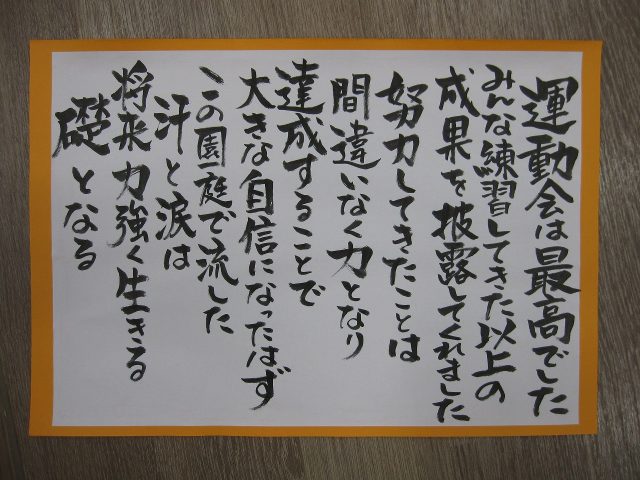 運動会は最高でした
みんな練習してきた以上の
成果を披露してくれました
努力してきたことは
間違いなく力となり
達成することで
大きな自信になったはず
この園庭で流した
汗と涙は
将来力強く生きる
礎となる